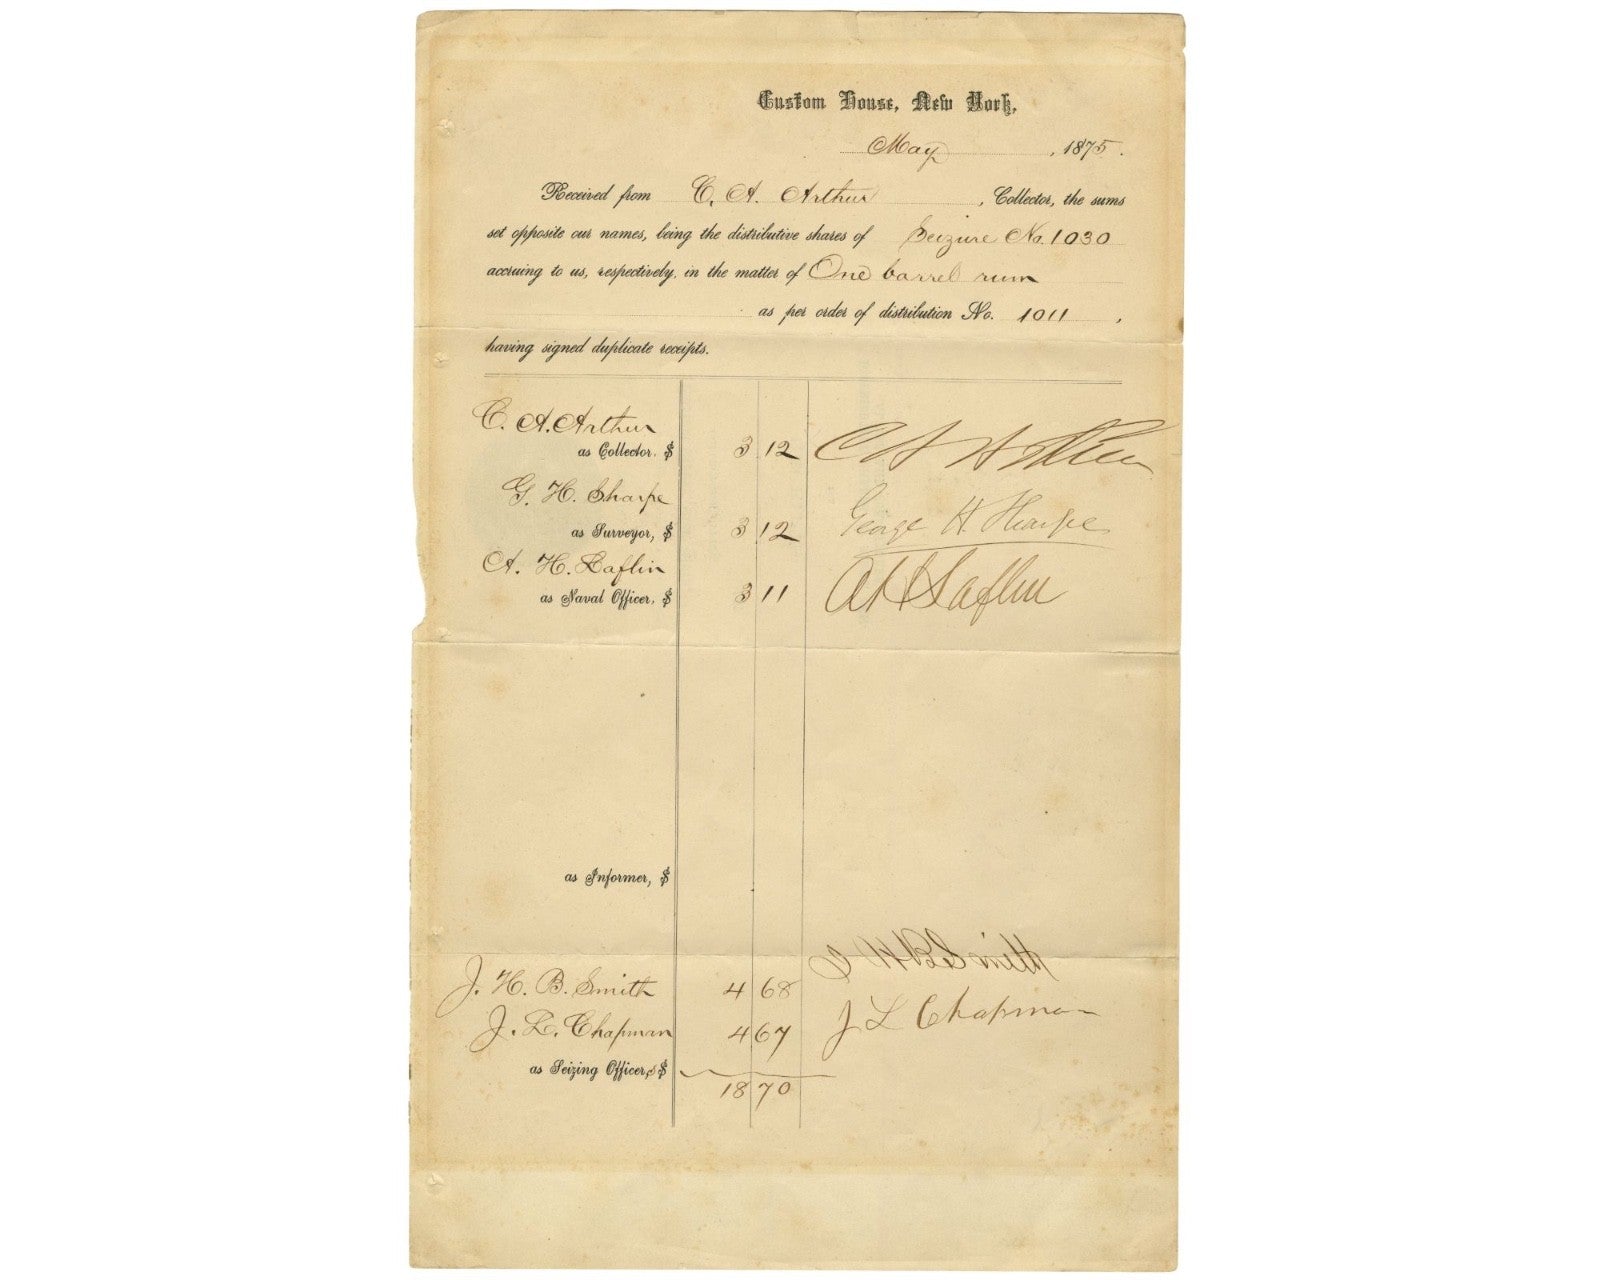 Custom House, New York,
May , 1875.
Received from C. A. Arthur , Collector, the sums
set opposite our names, being the distributive shares of Seizure No. 1030
accruing to us, respectively, in the matter of One barrel rum
as per order of distribution No. 1011 ,
having signed duplicate receipts.
C. A. Arthur
as Collector, $ 3 12 C A Arthur
G. H. Sharpe
as Surveyor, $ 3 12 George H Sharpe
A. H. Laflin
as Naval Officer, $ 3 11 A H Laflin
as Informer, $
J. H. B. Smith 4 68 J H B Smith
J. L. Chapman 4 67 J L Chapman
as Seizing Officers $
18 70